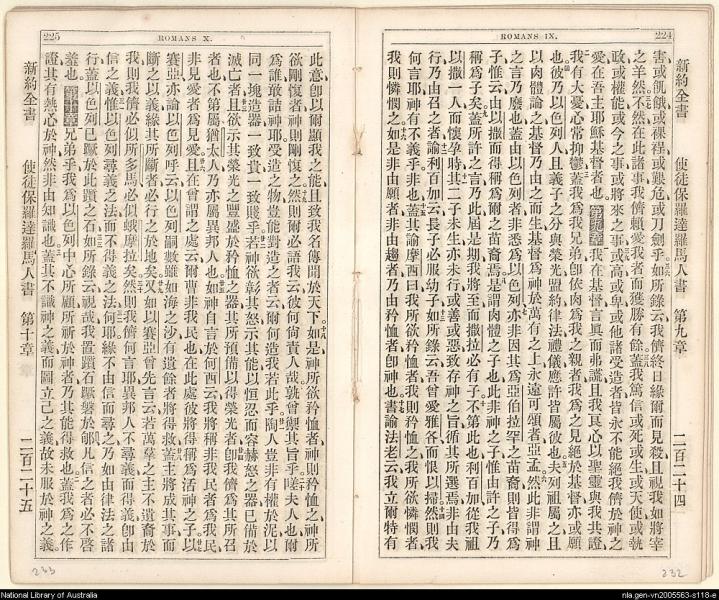 224
ROMANS IX.
新約全書 使徒保羅達羅馬人書 第九章 二百二十四
害或飢餓或裸裎或艱危或刀劍乎如所錄云我儕終日緣爾而見殺且視我如將宰
之羊然不然在此諸事我儕賴愛我者而獲勝有餘蓋我篤信或死或生或天使或執
政或權能或今之事或將來之事或高或卑或他諸受造者皆永不能絕我儕於神之
愛在吾主耶穌基督者也 第九章 我在基督言眞而弗謊且我良心以聖靈與我共證
我有大憂心常抑鬱蓋我爲我兄弟卽依肉爲我之親者我爲之見絕於基督亦或願
也彼乃以色列人且義子之分與榮光盟約律法禮儀應許皆屬之也夫列祖屬之且
以肉體論之基督乃由之而生基督爲神於萬有之上永遠可頌者亞孟然此非謂神
之言乃廢也蓋由以色列者非悉爲以色列亦非因其爲亞伯拉罕之苗裔則皆得爲
子惟云由以撒而得稱爲爾之苗裔焉是謂肉體之子也此非神之子惟由許之子乃
稱爲子矣蓋所許之言乃此屆是期我將至而撒拉必有子不第此也利百加從我祖
以撒一人而懷孕時其二子未生亦未行或善或惡致存神之旨循其所選焉非由夫
行乃由召之者諭利百加云長子必服幼子如所錄云吾曾愛雅各而恨以掃然則我
何言耶神有不義乎非也蓋其諭摩西曰我所欲矜恤者我則矜恤之我所欲憐憫者
我則憐憫之如是非由願者非由趨者乃由矜恤者卽神也書諭法老云我立爾特有
232
225
ROMANS X.
此意卽以爾顯我之能且致我名傳聞於天下如是神所欲矜恤者神則矜恤之神所
欲剛愎者神則剛愎之然則爾必語我云彼何尚責人哉孰曾禦其旨乎嗟夫人也爾
爲誰敢詰神耶受造之物豈能對造之者云爾何造我若此乎陶人豈非有權於泥以
同一塊造器一致貴一致賤乎若神欲彰其怒示其能以恒忍而容赫怒之器已備於
滅亡者且欲示其榮光之豐盛於矜恤之器其所預備以得榮光者卽我儕爲其所召
者也不第屬猶太人乃亦屬異邦人也如神自言於何西云我將稱非我民者爲我民
非見愛者爲見愛且在曾謂之處云爾曹非我民也在此處彼將得稱爲活神之子以
賽亞亦論以色列呼云以色列嗣數雖如海之沙有遺餘者將得救蓋主將成其事而
斷之以義緣其所斷者必行之於地矣又如以賽亞曾先言云若萬軍之主不遺裔於
我則我儕必似所多馬必似蛾摩拉矣然則我儕何言耶異邦人不尋義而得義卽由
信之義惟以色列尋義之法而不得義之法何耶緣不由信而尋之乃如由律法之諸
行蓋以色列已蹶於此躓之石如所錄云視哉我置躓石蹶磐於郇凡信之者必不啓
羞也 第十章 兄弟乎我爲以色列中心所願所祈於神者乃其能得救也蓋我爲之作
證其有熱心於神然非由知識也蓋其不識神之義而圖立己之義故未服於神之義
新約全書 使徒保羅達羅馬人書 第十章 二百二十五
233
National Library of Australia
nla.gen-vn2005563-s118-e